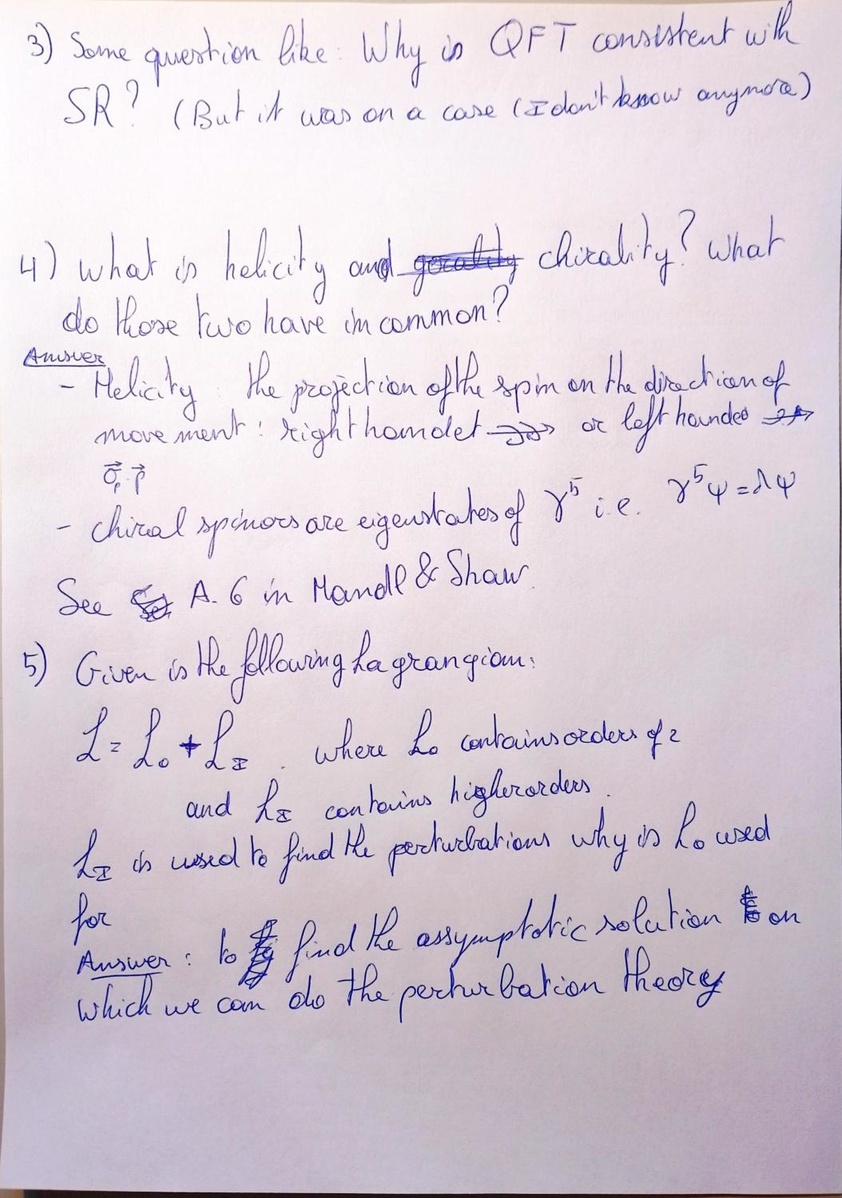 3) Some question like: Why is QFT consistent with
SR? (But it was on a case (I don't know anymore)
4) what is helicity and chirality? What
do those two have in common?
Answer
- Helicity: the projection of the spin on the direction of
movement: right handet or left handed
σ⃗. p⃗
- chiral spinors are eigenstates of γ⁵ i.e. γ⁵ψ=λψ
See A.6 in Mandl & Shaw.
5) Given is the following Lagrangian:
L = L₀ + L_I. where L₀ contains orders of 2
and L_I contains higher orders.
L_I is used to find the perturbations why is L₀ used
for
Answer: to find the assymptotic solution on
which we can do the perturbation theory